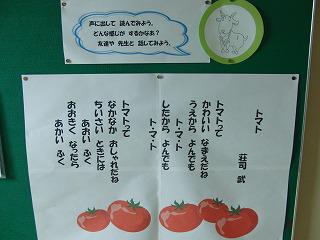 声に出して 読んでみよう。
どんな感じが するかなあ?
友達や 先生と 話してみよう。
トマト
荘司 武
トマトって
かわいい なまえだね
うえから よんでも
ト・マ・ト
したから よんでも
ト・マ・ト
トマトって
なかなか おしゃれだね
ちいさい ときには
あおい ふく
おおきく なったら
あかい ふく